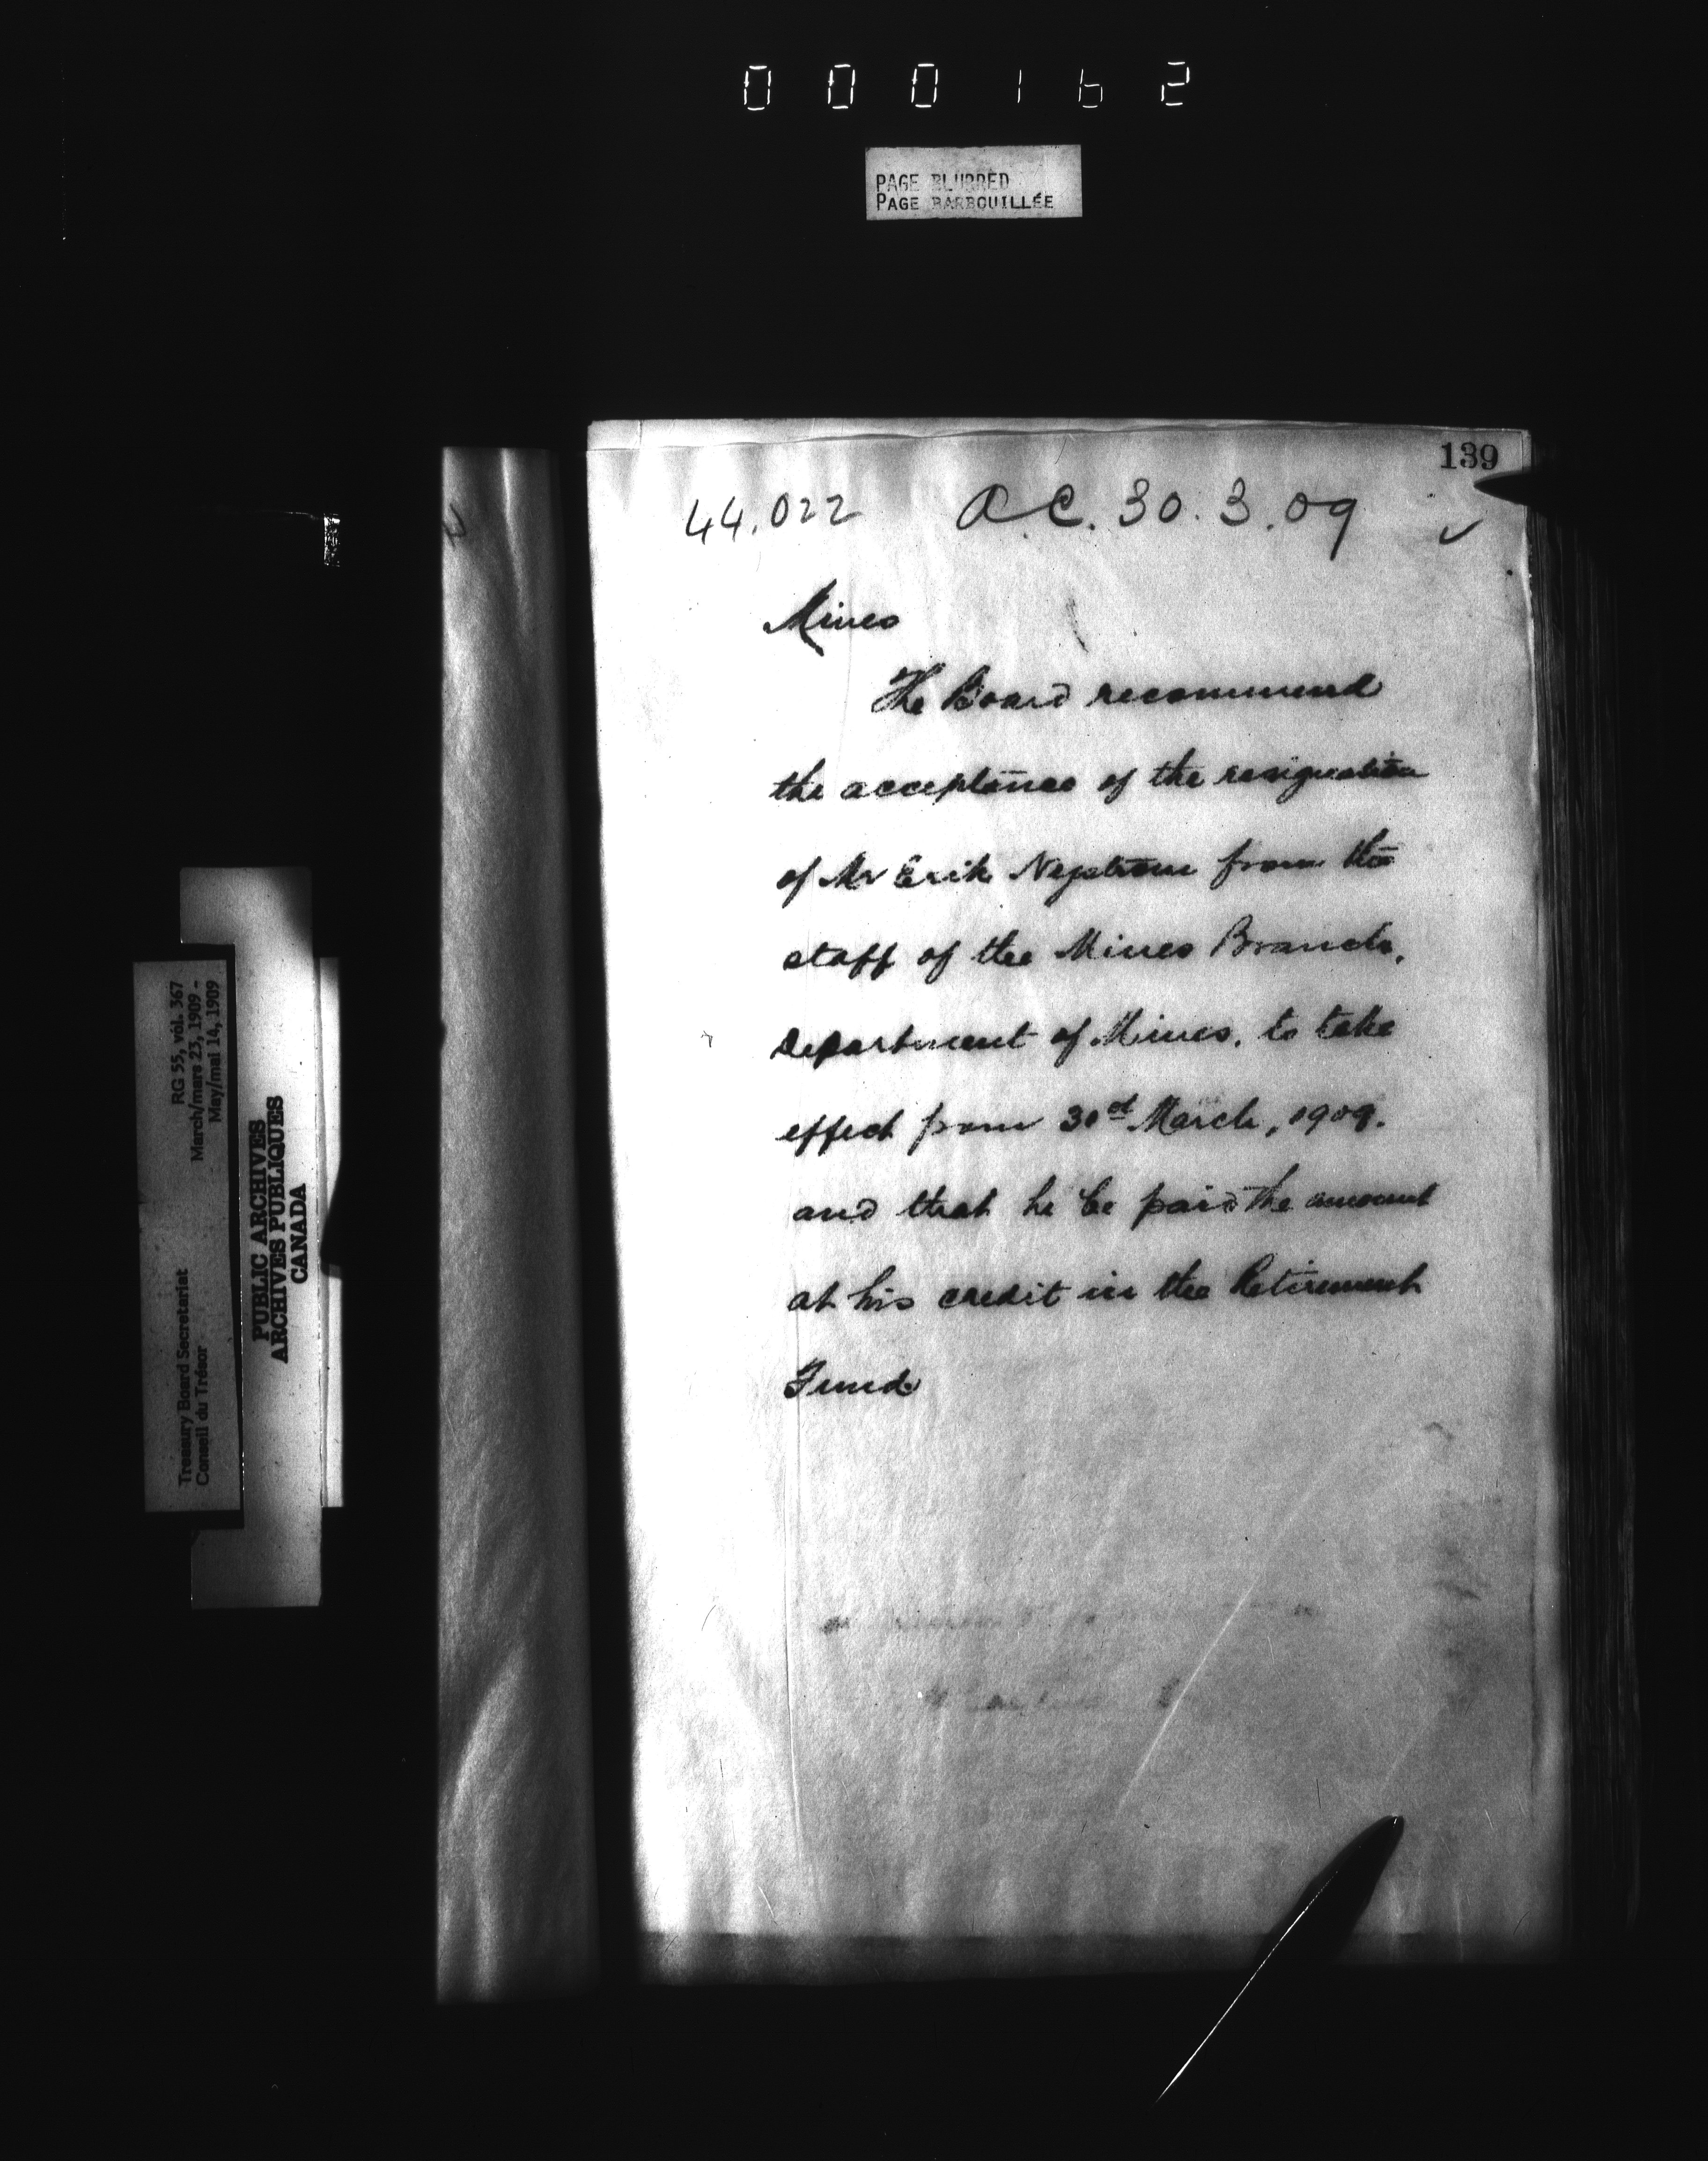 000162
PAGE BLURRED
PAGE BARBOUILLÉE
139
44.022 O.C. 30.3.09
Mines
The Board recommend
the acceptance of the resignation
of Mr Erik Nystrom from the
staff of the Mines Branch,
Department of Mines, to take
effect from 30th March, 1909.
and that he be paid the amount
at his credit in the Retirement
Fund
RG 55, vol. 367
March/mars 23, 1909 -
May/mai 14, 1909
Treasury Board Secretariat
Conseil du Trésor
PUBLIC ARCHIVES
ARCHIVES PUBLIQUES
CANADA